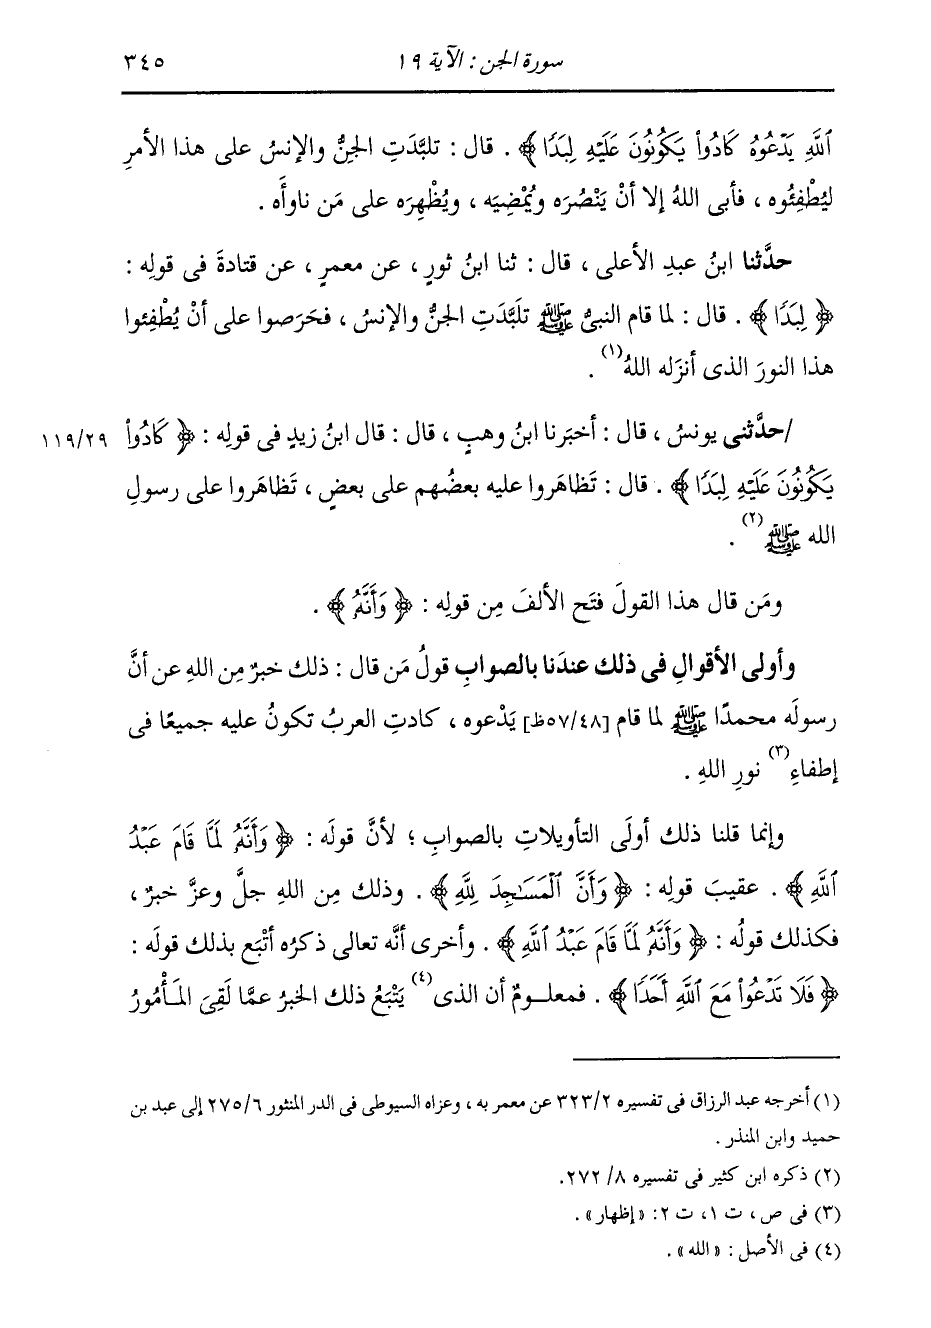 سورة الجن : الآية ١٩ ٣٤٥
ٱللَّهِ يَدْعُوهُ كَادُوا۟ يَكُونُونَ عَلَيْهِ لِبَدًا﴾ . قال : تلبَّدَتِ الجنُّ والإنسُ على هذا الأمرِ
ليُطْفِئُوه ، فأبى اللهُ إلا أنْ يَنْصُرَه ويُمْضِيَه ، ويُظْهِرَه على مَن ناوأَه .
حدَّثنا ابنُ عبدِ الأعلى ، قال : ثنا ابنُ ثورٍ ، عن معمرٍ ، عن قتادةَ فى قولِه :
﴿ لِبَدًا ﴾ . قال : لما قام النبىُّ ﷺ تلَبَّدَتِ الجنُّ والإنسُ ، فحَرَصوا على أنْ يُطْفِئوا
هذا النورَ الذى أنزَله اللهُ(١) .
/حدَّثنى يونسُ ، قال : أخبَرنا ابنُ وهبٍ ، قال : قال ابنُ زيدٍ فى قولِه : ﴿ كَادُوا۟ ١١٩/٢٩
يَكُونُونَ عَلَيْهِ لِبَدًا ﴾ . قال : تَظاهَروا عليه بعضُهم على بعضٍ ، تَظاهَروا على رسولِ
الله ﷺ(٢) .
ومَن قال هذا القولَ فتَح الألفَ مِن قولِه : ﴿ وَأَنَّهُ ﴾ .
وأولى الأقوالِ فى ذلك عندَنا بالصوابِ قولُ مَن قال : ذلك خبرٌ مِن اللهِ عن أنَّ
رسولَه محمدًا ﷺ لما قام [٥٧/٤٨ظ] يَدْعوه ، كادتِ العربُ تكونُ عليه جميعًا فى
إطفاءِ(٣) نورِ اللهِ .
وإنما قلنا ذلك أولَى التأويلاتِ بالصوابِ ؛ لأنَّ قولَه : ﴿ وَأَنَّهُ لَمَّا قَامَ عَبْدُ
ٱللَّهِ ﴾ . عقيبَ قولِه : ﴿ وَأَنَّ ٱلْمَسَٰجِدَ لِلَّهِ ﴾ . وذلك مِن اللهِ جلَّ وعزَّ خبرٌ ،
فكذلك قولُه : ﴿ وَأَنَّهُ لَمَّا قَامَ عَبْدُ ٱللَّهِ ﴾ . وأخرى أنَّه تعالى ذكرُه أتْبَع بذلك قولَه :
﴿ فَلَا تَدْعُوا۟ مَعَ ٱللَّهِ أَحَدًا ﴾ . فمعلـومٌ أن الذى(٤) يَتْبَعُ ذلك الخبرُ عمَّا لَقِىَ المَـأْمُورُ
(١) أخرجه عبد الرزاق فى تفسيره ٣٢٣/٢ عن معمر به ، وعزاه السيوطى فى الدر المنثور ٢٧٥/٦ إلى عبد بن
حميد وابن المنذر .
(٢) ذكره ابن كثير فى تفسيره ٨/ ٢٧٢.
(٣) فى ص ، ت ١، ت ٢: «إظهار» .
(٤) فى الأصل : «الله» .